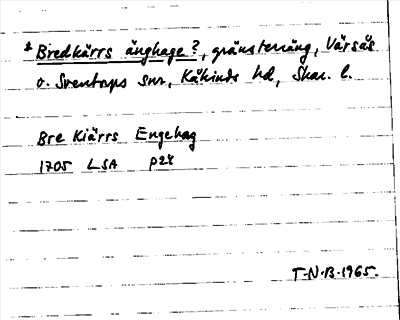 * Bredkärrs änghage?, gränsterräng, Värsås
o. Sventorps snr, Kåkinds hd, Skar. l.
Bre Kiärrs Engehag
1705 LSA P28
T-N-B-1965.